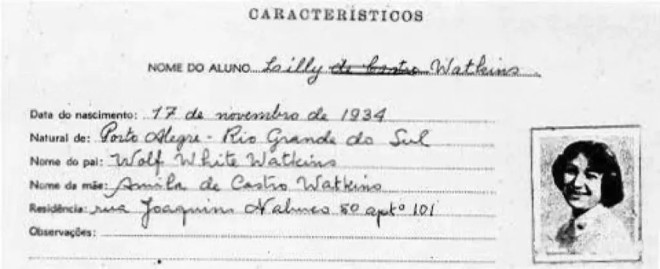 CARACTERÍSTICOS
NOME DO ALUNO Lilly de Castro Watkins
Data do nascimento: 17 de novembro de 1934
Natural de: Porto Alegre - Rio Grande do Sul
Nome do pai: Wolf White Watkins
Nome da mãe: de Castro Watkins
Residência: rua Joaquim Nabuco 80 aptº 101
Observações: